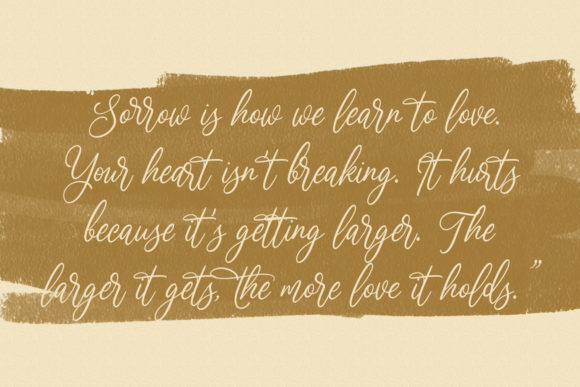 "Sorrow is how we learn to love.
Your heart isn't breaking. It hurts
because it's getting larger. The
larger it gets, the more love it holds."